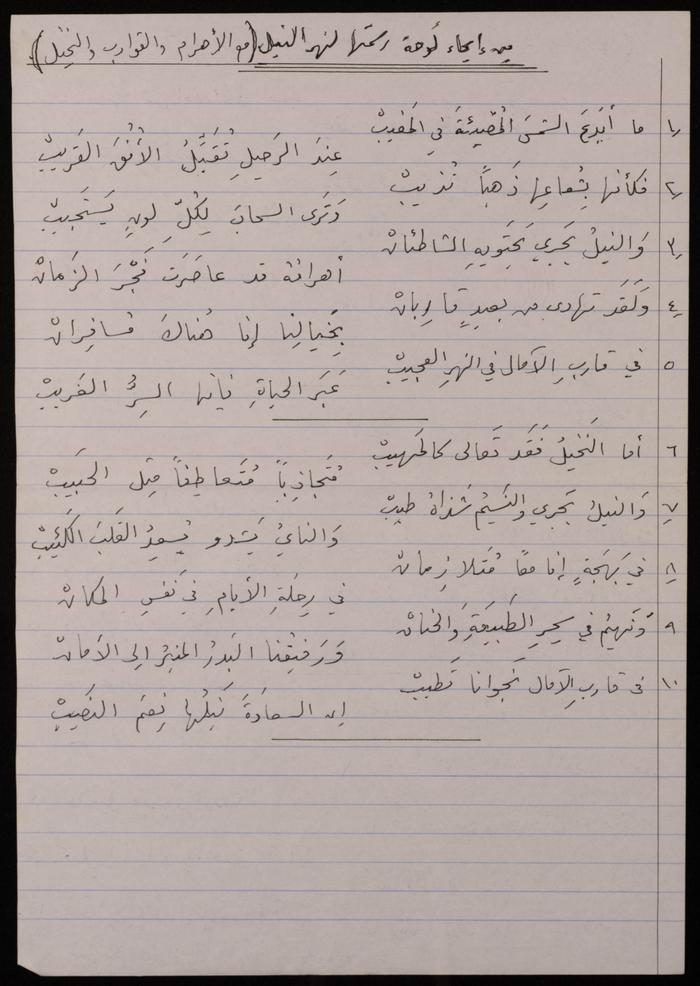 من إيحاء لوحة رسمتها لنهر النيل (مع الأهرام والقوارب والنخيل)
١/ ما أَبْدَعَ الشمسَ المُضيئةَ في المَغيبْ
عِندَ الرَحيلِ تُقَبِّلُ الأُفُقَ القَريبْ
٢/ فكأنها بِشُعاعِها ذَهَباً تُذيبْ
وَتَرى السحابَ لِكُلِّ لونٍ يَستَجيبْ
٣/ وَالنيلُ يَجري يَحتَويهِ الشاطئانْ
أهرامُهُ قد عاصَرَت فَجْرَ الزَمانْ
٤ وَلَقَد تهادى من بعيدٍ قارِبانْ
بِخيالِنا إنا هُناكَ مُسافِرانْ
٥ في قاربِ الآمالِ في النهرِ العجيبْ
عَبَرَ الحياةِ فإنها السِرُّ الغَريبْ
٦ أما النَخيلُ فَقَد تَعالى كالمَهيبْ
مُتَجاذِباً مُتَعاطِفاً مِثل الحَبيبْ
٧/ وَالنيلُ يَجري والنَسيمُ شَذاهُ طيبْ
وَالنايُ يَشدو يُسعِدُ القَلبَ الكَئيبْ
٨/ في بَهجَةٍ إنا معًا مُتَلازِمانْ
في رِحلَةِ الأيامِ في نَفسِ المكانْ
٩ وَنَهيمُ في سِحرِ الطَبيعَةِ وَالحَنانْ
وَرَفيقُنا البَدرُ المنيرُ إلى الأمانْ
١٠ في قاربِ الآمال نَجوانا تَطيبْ
إن السعادَةَ نَيلُها نِعمَ النَصيبْ